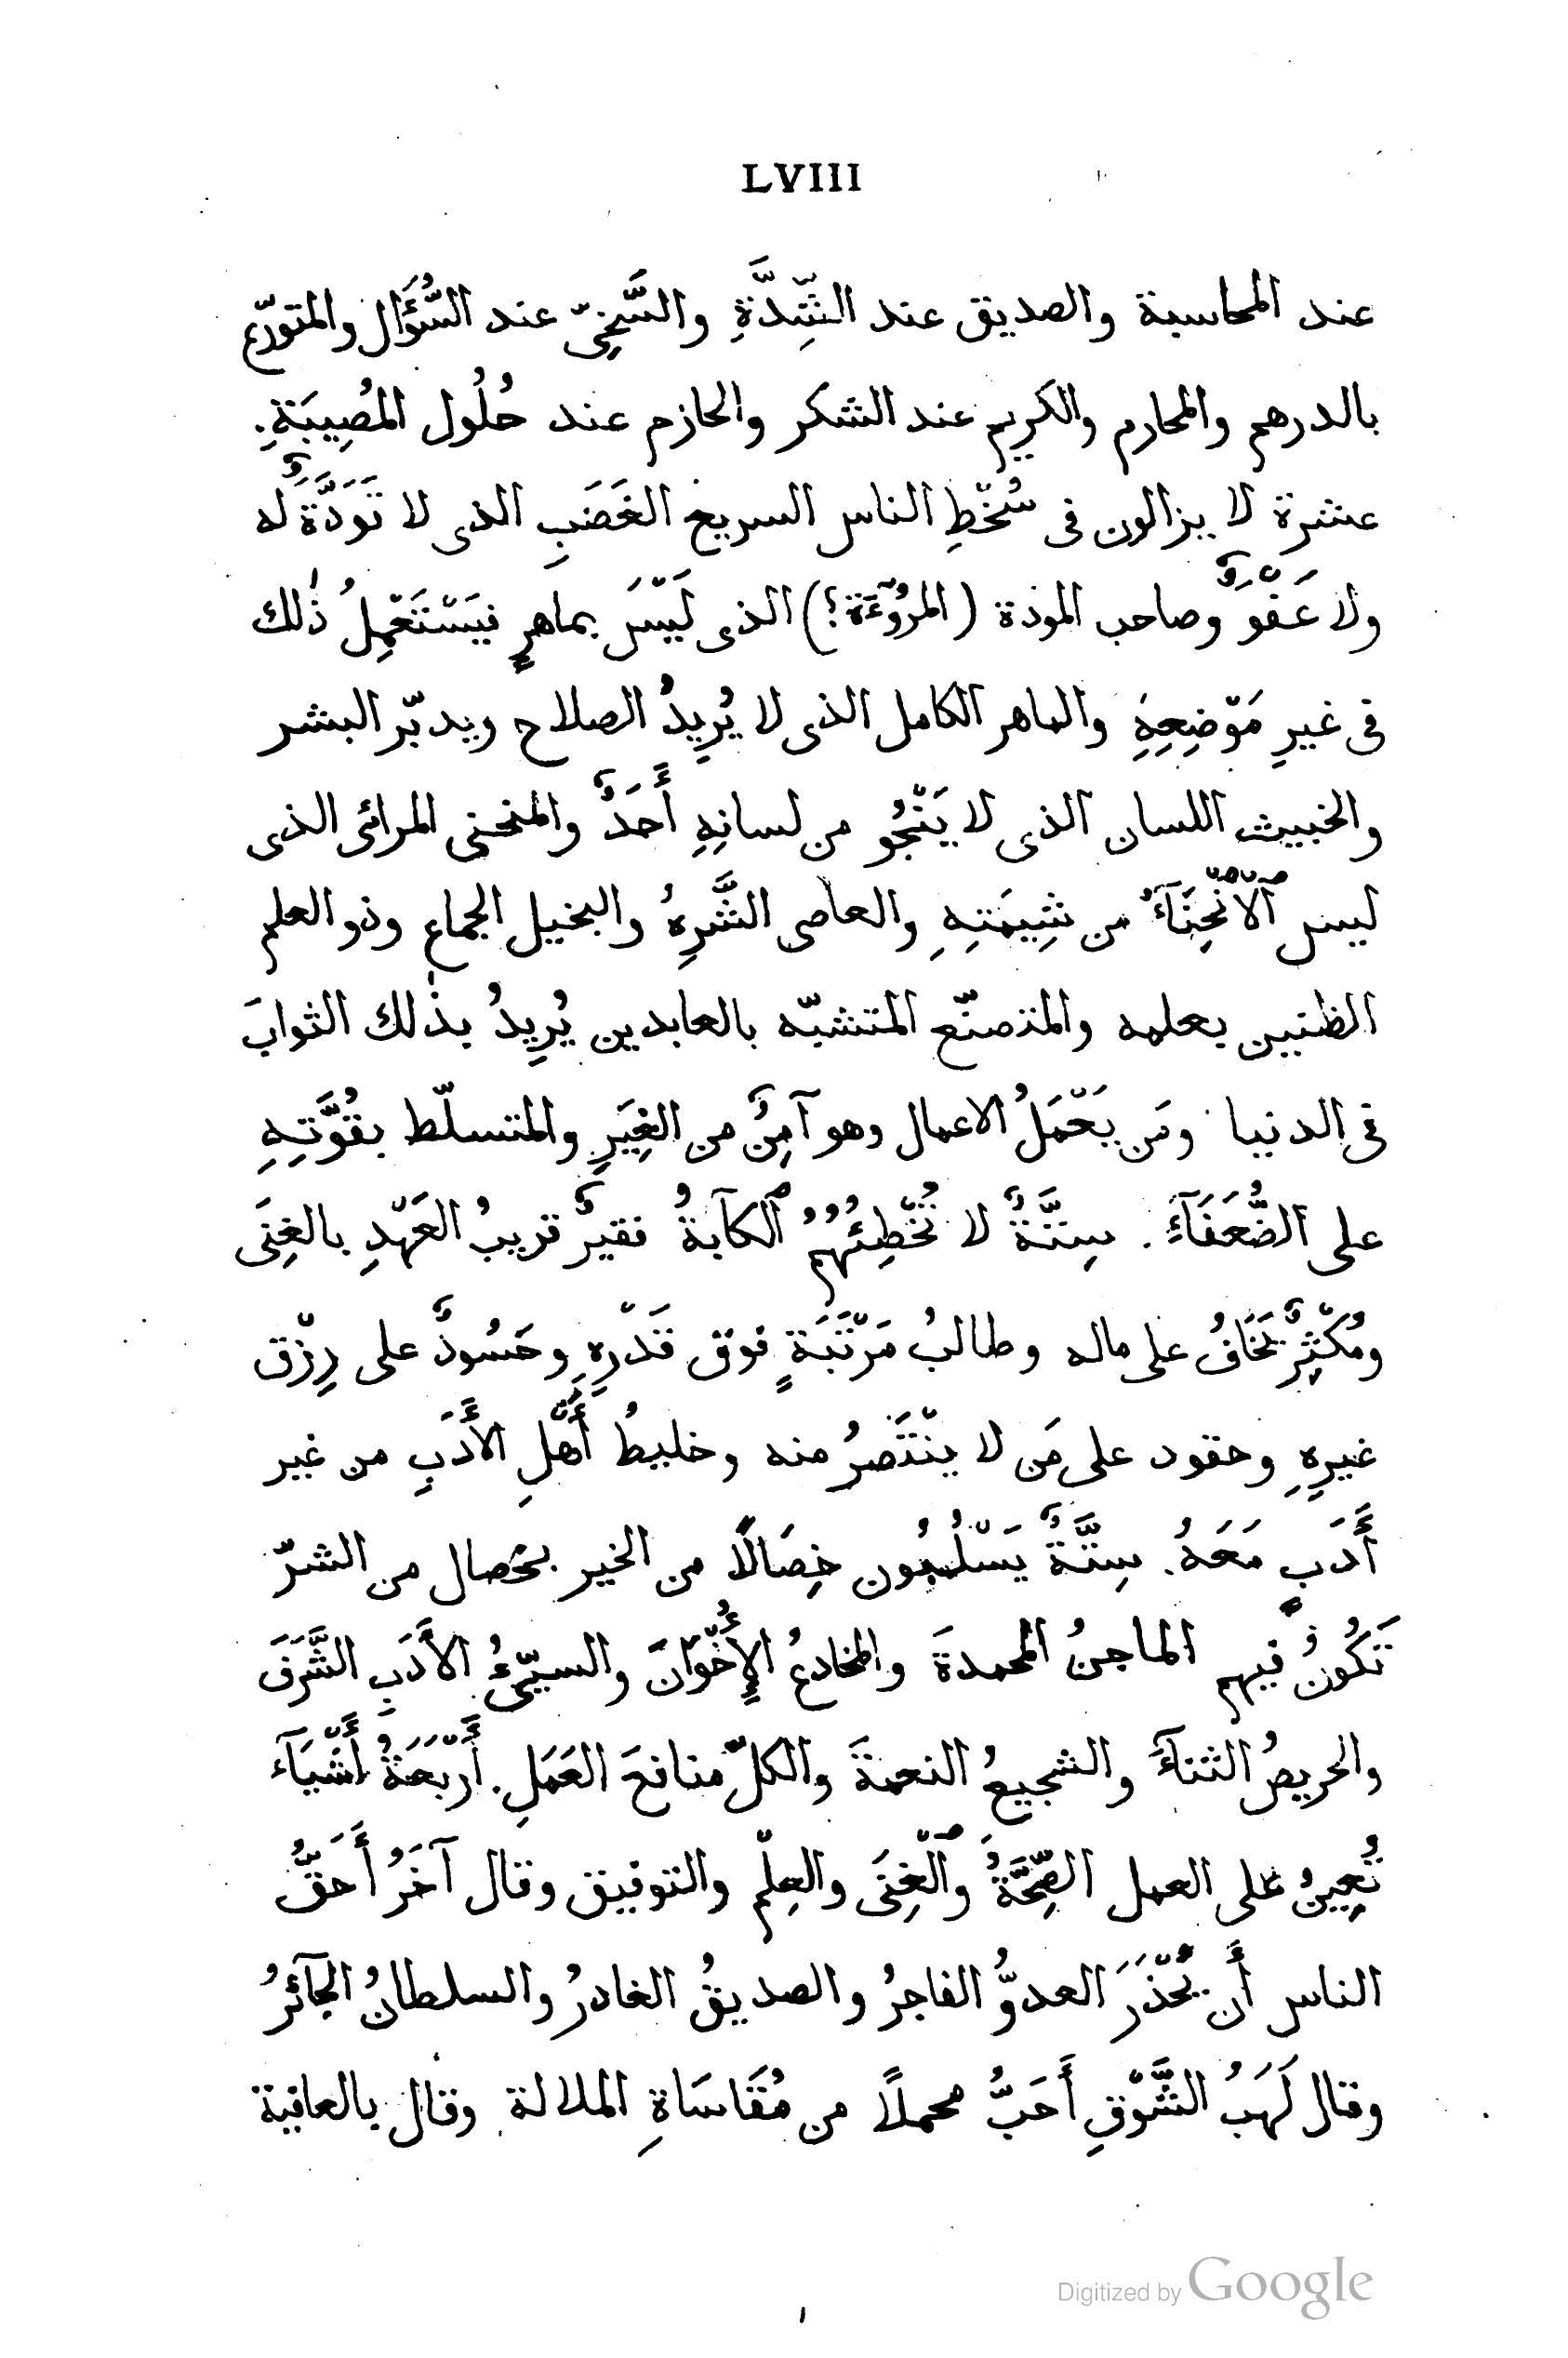 LVIII
عند المحاسبة والصديق عند الشِّدَّةِ والسَّخِىّ عند السُّؤَال والمتورّع
بالدرهم والمحارم والكريم عند الشكر والحازم عند حُلُول المُصِيبَةِ.
عشرة لا يزالون فى سُخْطِ الناس السريع الغَضَبِ الذى لا تَوَدَّةٌ له
ولا عَفْوٌ وصاحب المودة (المرُوَّءَة؟) الذى لَيْسَ بماهرٍ فيَسْتَعْمِلُ ذٰلك
فى غيرِ مَوْضِعِهِ والماهر الكامل الذى لا يُرِيدُ الصلاح ويدبّر البشر
والخبيث اللسان الذى لا يَنْجُو من لسانِهِ أَحَدٌ والمنحنى المرائى الذى
ليس ٱلْٱنْحِنَآءُ من شِيمَتِهِ والعاصى الشَّرِهُ والبخيل الجماع وذو العلم
الظنين بعلمه والمتصنّع المتشبّه بالعابدين يُرِيدُ بذٰلك الثوابَ
فى الدنيا ومَن يَحْمَلُ الاعمال وهو آمِنٌ من الغِيَرِ والمتسلّط بقُوَّتِهِ
على الضُّعَفَآءَ. سِتَّةٌ لا تُخْطِئُهُمُ ٱلكآبةُ فقيرٌ قريبُ العَهْدِ بالغِنَى
ومُكْثِرٌ يَخَافُ على ماله وطالبُ مَرْتَبَةٍ فوق قَدْرِهِ وحَسُودٌ على رِزْق
غيرِهِ وحقود على مَن لا ينْتَصَرُ منه وخليطُ أَهْلِ الأَدَبِ من غير
أَدَبٍ مَعَهُ. سِتَّةٌ يَسْلُبُون خِصَالًا من الخير بخصال من الشرّ
تَكُونُ فيهم الماجنُ المحمدةَ والمخادعُ الإُخْوَانَ والسيّئُ الأَدَبِ الشَّرَفَ
والحريصُ الثنآءَ والشجيعُ النعمةَ والكلّ منافعَ العَمَلِ. أَرْبَعَةُ أَشْيَآءَ
تُعِينُ على العمل الصِّحَّةُ وَٱلْغِنَى والعِلْم والتوفيق وقال آخَرُ أَحَقُّ
الناس أَن يُحْذَرَ العدوُّ الفاجرُ والصديقُ الغادرُ والسلطانُ الجَآئرُ
وقال لَهَبُ الشَّوْقِ أَحَبُّ محملاً من مُقَاسَاةِ الملالة وقال بالعافية
Digitized by Google